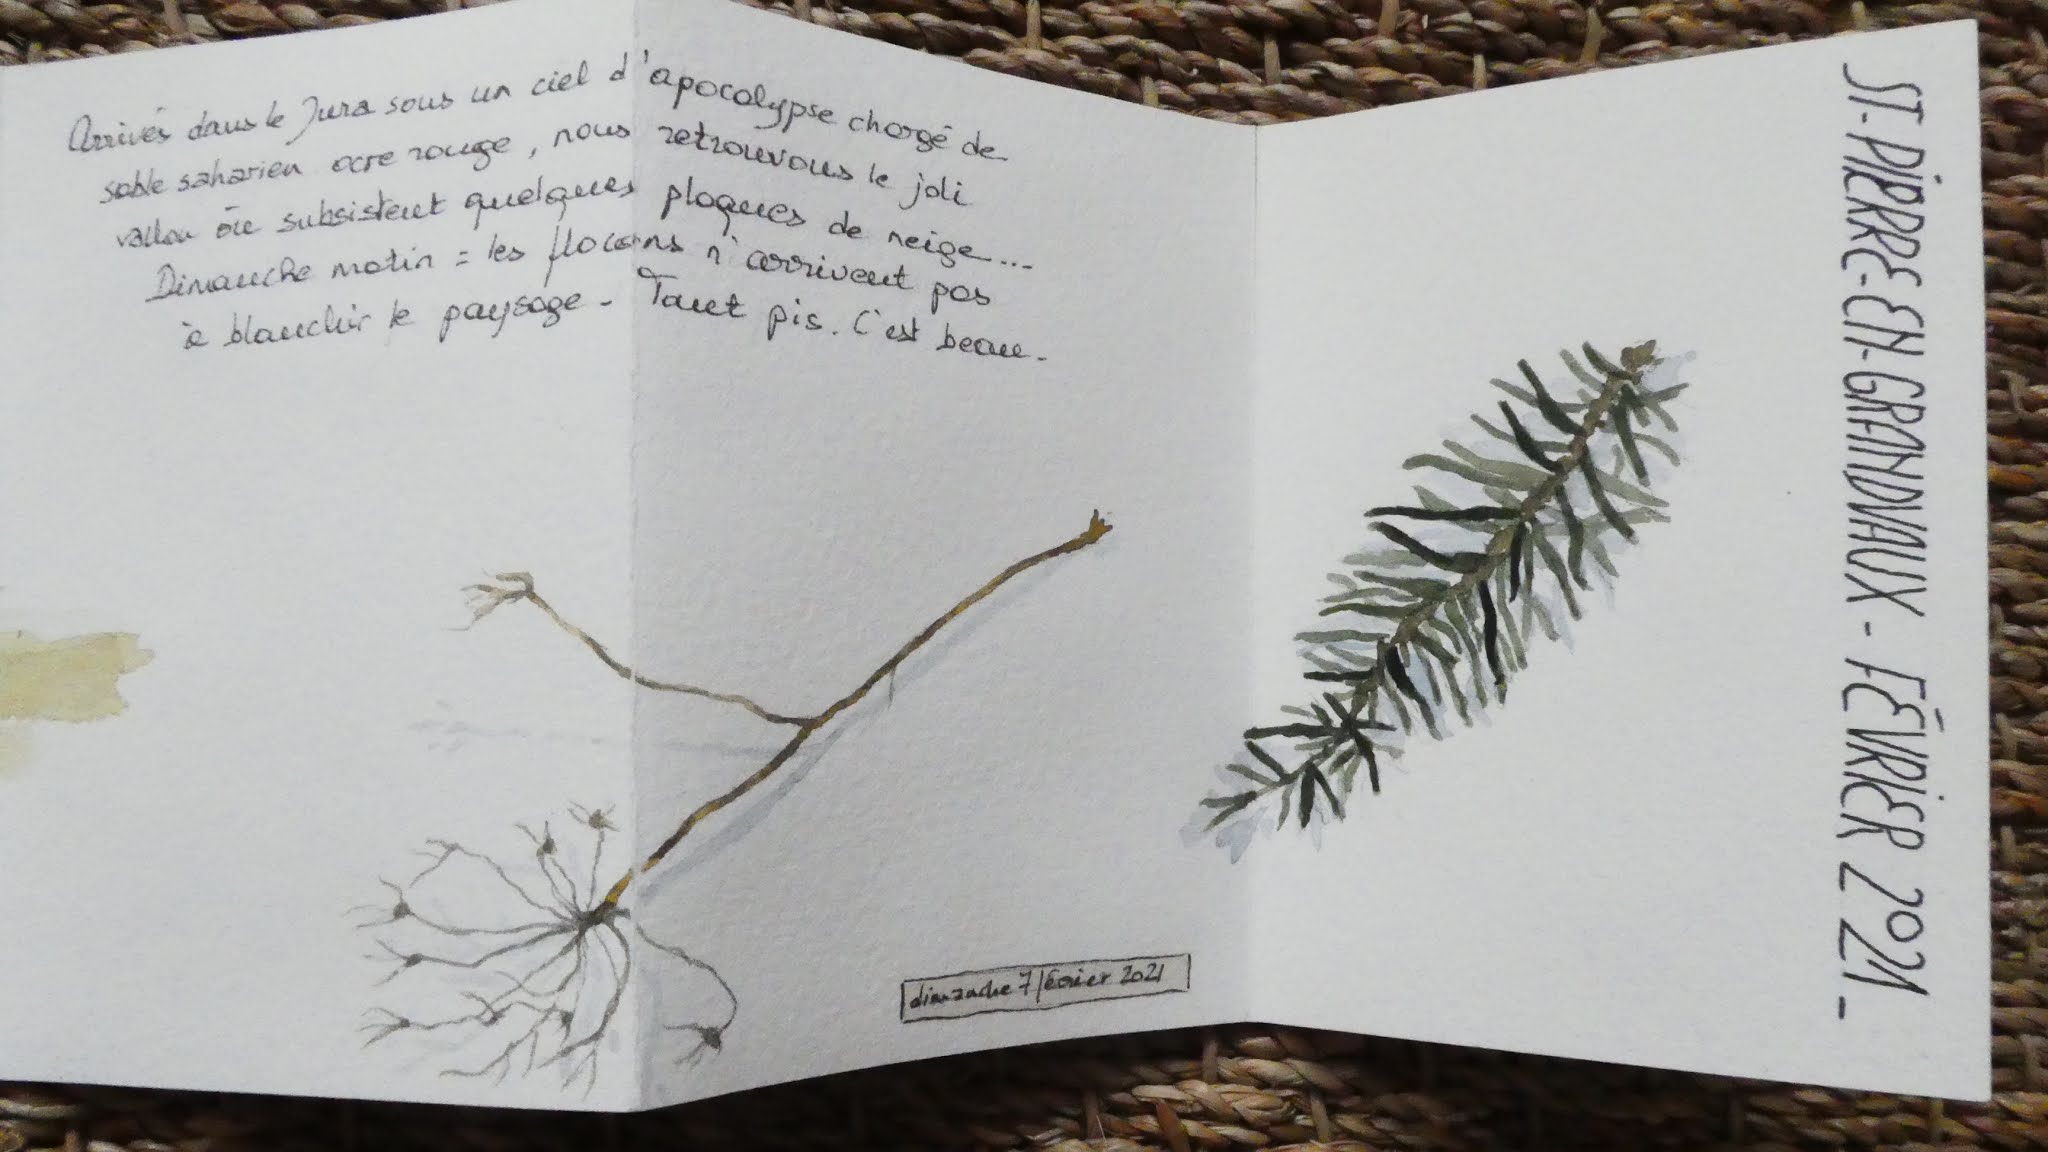 Arrivés dans le Jura sous un ciel d'apocalypse chargé de
sable saharien ocre rouge, nous retrouvons le joli
vallon où subsistent quelques plaques de neige...
Dimanche matin = les flocons n'arrivent pas
à blanchir le paysage - Tant pis. C'est beau.
dimanche 7 février 2021
ST-PIERRE-EN-GRANDVAUX - FÉVRIER 2021 -